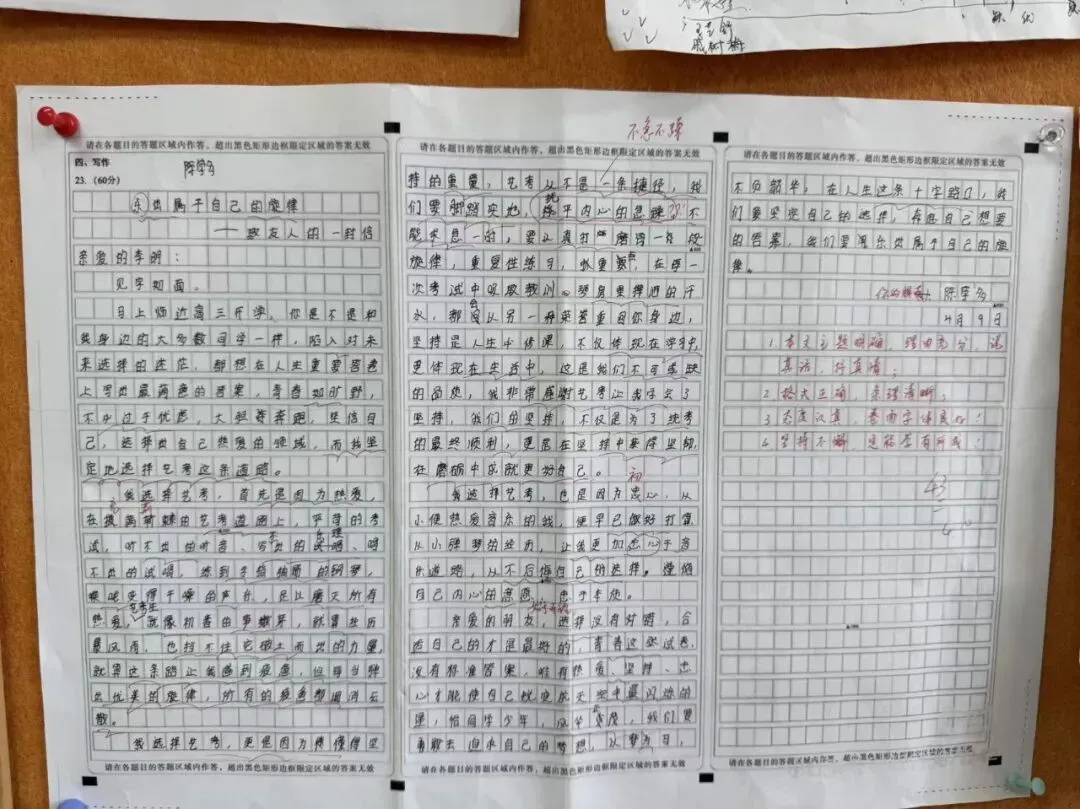 请在各题目的答题区域内作答，超出黑色矩形边框限定区域的答案无效
四、写作
23.（60分）
奏出属于自己的旋律
——致友人的一封信
亲爱的李明：
见字如面。
马上临近高三开学，你是不是和
我身边的大多数同学一样，陷入对未
来选择的迷茫，都想在人生重要答卷
上写出最满意的答案，青春如旷野，
不必过于忧虑，大胆奔跑，坚信自
己，选择出自己热爱的领域，而我坚
定地选择艺考这条道路。
我选择艺考，首先是因为热爱，
在的艺考道路上，平常的考
试，听不出的听音、写不出的乐理、唱
不出的试唱，练到手指的钢琴，
喉咙变得干哑的声乐，足以磨灭所有
热爱，就像初春的嫩芽，就算狂历
暴风雨，也挡不住它破土而出的力量，
就算这条路让我感到疲惫，但每当弹
出优美的旋律，所有的疲惫都烟消云
散。
我选择艺考，更是因为懂得坚
请在各题目的答题区域内作答，超出黑色矩形边框限定区域的答案无效
不急不躁
请在各题目的答题区域内作答，超出黑色矩形边框限定区域的答案无效
持的重量，艺考从不是一条捷径，我
们要脚踏实地，抚平内心的急躁，不
能求急一时，要认真打磨每一段
旋律，重复性练习，在每一
次考试中吸取教训。琴房里挥洒的汗
水，都会从另一种荣誉重回你身边，
坚持是人生中修课，不仅体现在学习中，
更体现在生活中，这是我们不可或缺
的品质，我非常感谢艺考让我学会了
坚持，我们的坚持，不仅是为了统考
的最终顺利，更是在坚持中获得坚韧，
在磨砺中成就更好自己。
我选择艺考，也是因为初心，从
小便热爱音乐的我，便早已做好打算，
从小弹琴的经历，让我更加忠心于音
乐道路，从不后悔自己的选择。遵循
自己内心的意愿，忠于本质。
亲爱的朋友，选择没有对错，合
适自己的才是最好的，青春这张试卷，
没有标准答案，唯有热爱、坚持、忠
心才能使自己蜕变成天空中最闪烁的
星，恰同学少年，风华正茂，我们要
勇敢去追求自己的梦想，以梦为马，
请在各题目的答题区域内作答，超出黑色矩形边框限定区域的答案无效
请在各题目的答题区域内作答，超出黑色矩形边框限定区域的答案无效
不负韶华；在人生这条十字路口，我
们要坚定自己的选择，存在自己想要
的答案，我们要演奏出属于自己的旋
律。
你的朋友
4月9日
1. 本文主题明确，理由充分，说
真话，抒真情；
2. 格式正确，条理清晰；
3. 态度认真，卷面字体良好；
4. 坚持不懈，定能会有所成！
43
请在各题目的答题区域内作答，超出黑色矩形边框限定区域的答案无效